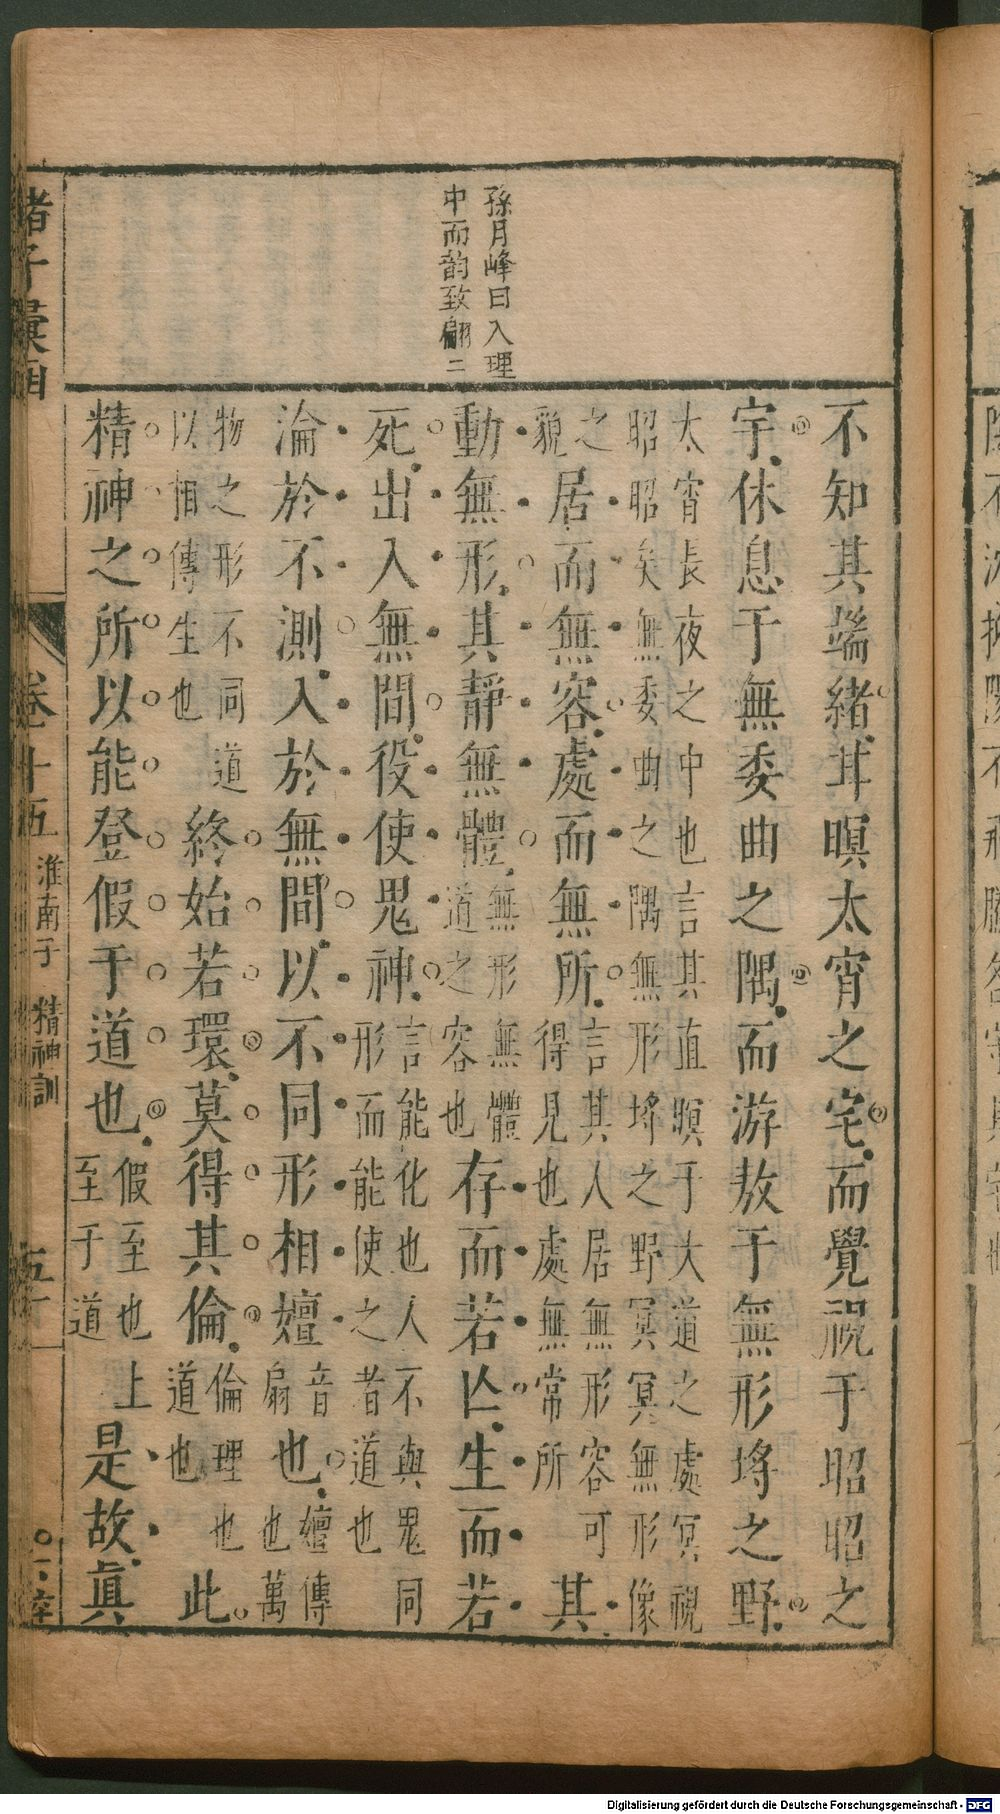 孫月峰曰入理
中而韵致翩二
不知其端緒甘暝太宵之宅而覺視于昭昭之
宇休息于無委曲之隅而游敖于無形埒之野
太宵長夜之中也言其直暝于大道之處冥視
昭昭矣無委曲之隅無形埒之野冥冥無形像
之
貌
居而無容處而無所
言其人居無形容可
得見也處無常所
其
動無形其靜無體
無形無體
道之容也
存而若亾生而若
死出入無間役使鬼神
言能化也人不與鬼同
形而能使之者道也
淪於不測入於無間以不同形相嬗
音
扇
也
嬗傳
也萬
物之形不同道
以相傳生也
終始若環莫得其倫
倫理也
道也
此
精神之所以能登假于道也
假至也上
至于道
是故眞
諸子彙函
卷十五
淮南子 精神訓
Digitalisierung gefördert durch die Deutsche Forschungsgemeinschaft - DFG